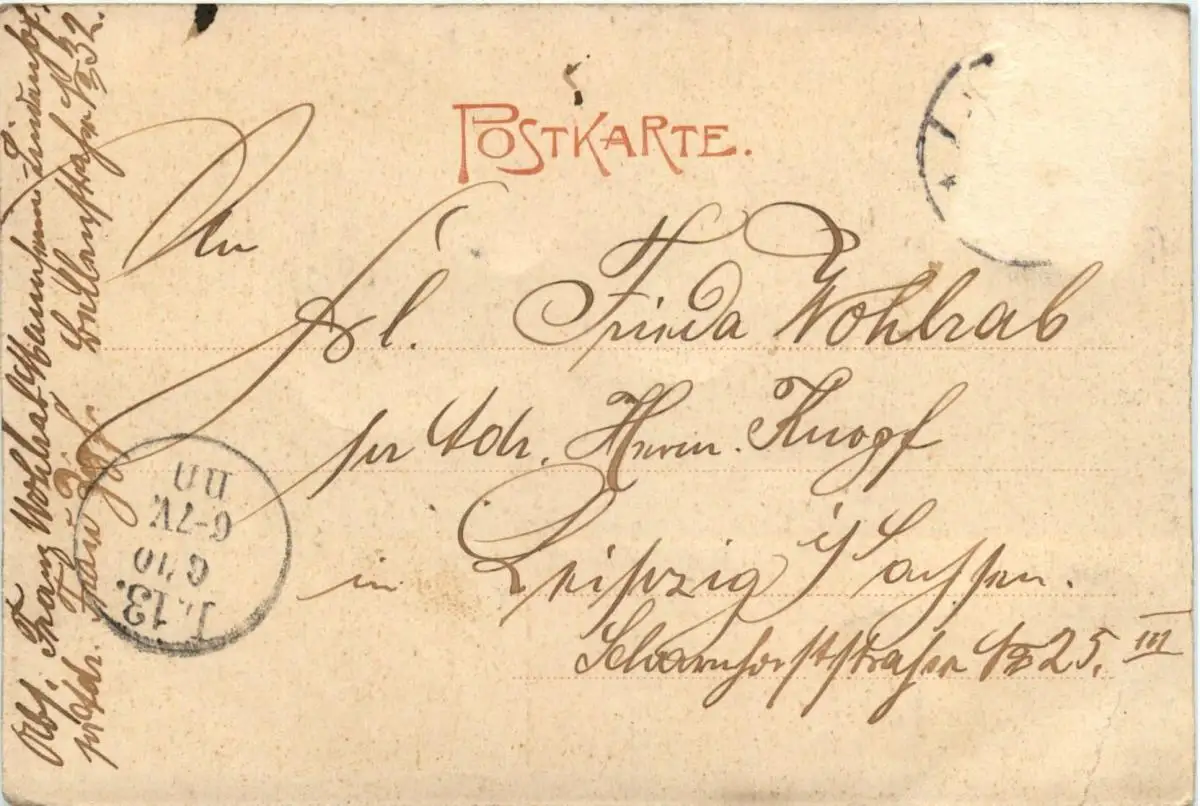 POSTKARTE.
An
Frl. Frieda Wohlrab
per Adr. Herrn. Knopf
in Leipzig i/Sachsen.
Scharnhorststrasse No 25. III
Abs. Franz Wohlrab Mannheim-Lindenhof
p. Adr. Frau No 32.
L.13.
6 10
6-7V.